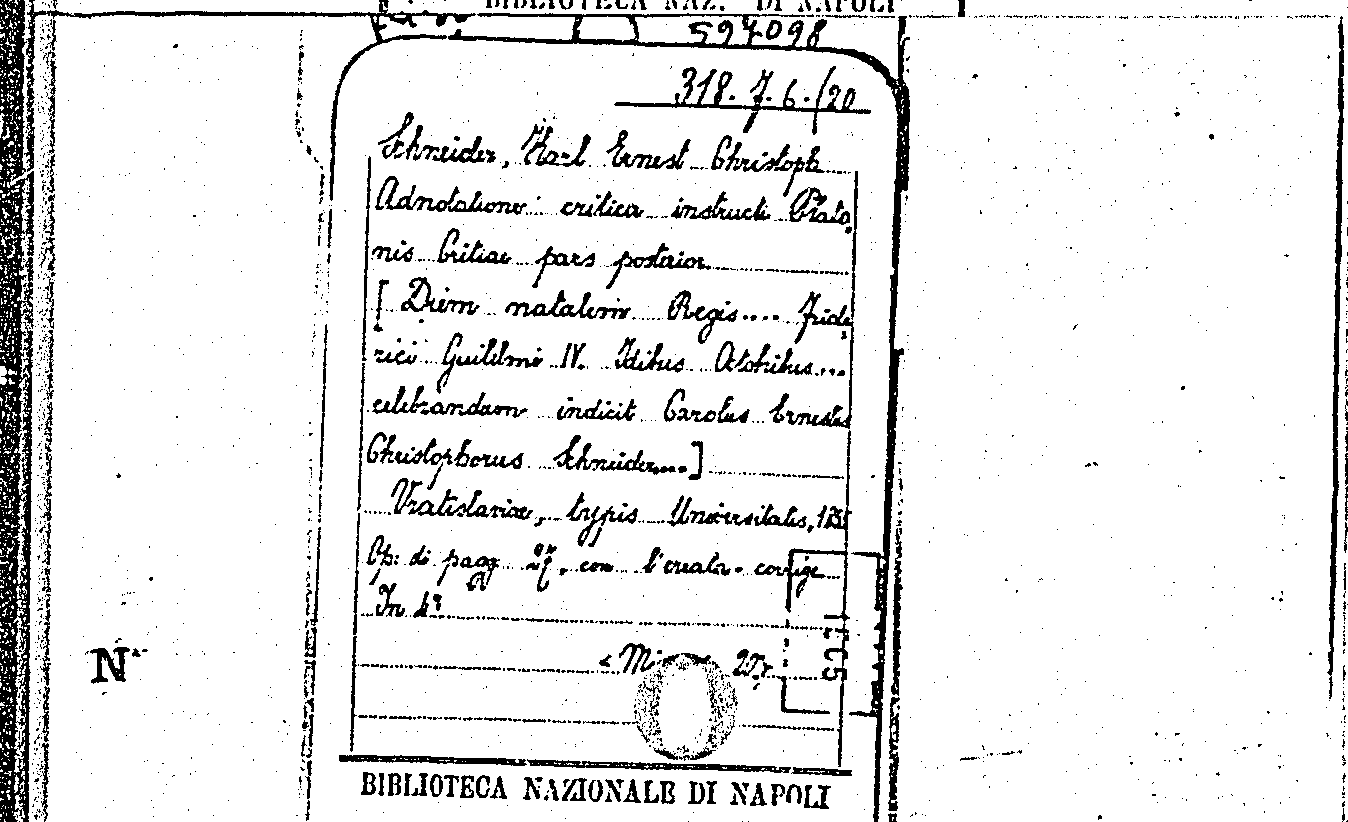 BIBLIOTECA NAZ. DI NAPOLI
597098
318. 7. 6. /20
Schneider, Karl Ernest Christoph
Adnotatione critica instructi Plato-
nis Critiae pars posterior
[ Diem natalem Regis.... Fride-
rici Guilelmi IV. Idibus Octobribus...
celebrandum indicit Carolus Ernestus
Christophorus Schneider....]
Vratislaviae, typis Universitatis,
Op. di pagg 27. con l'errata-corrige
In 4º
BIBLIOTECA NAZIONALE DI NAPOLI
N